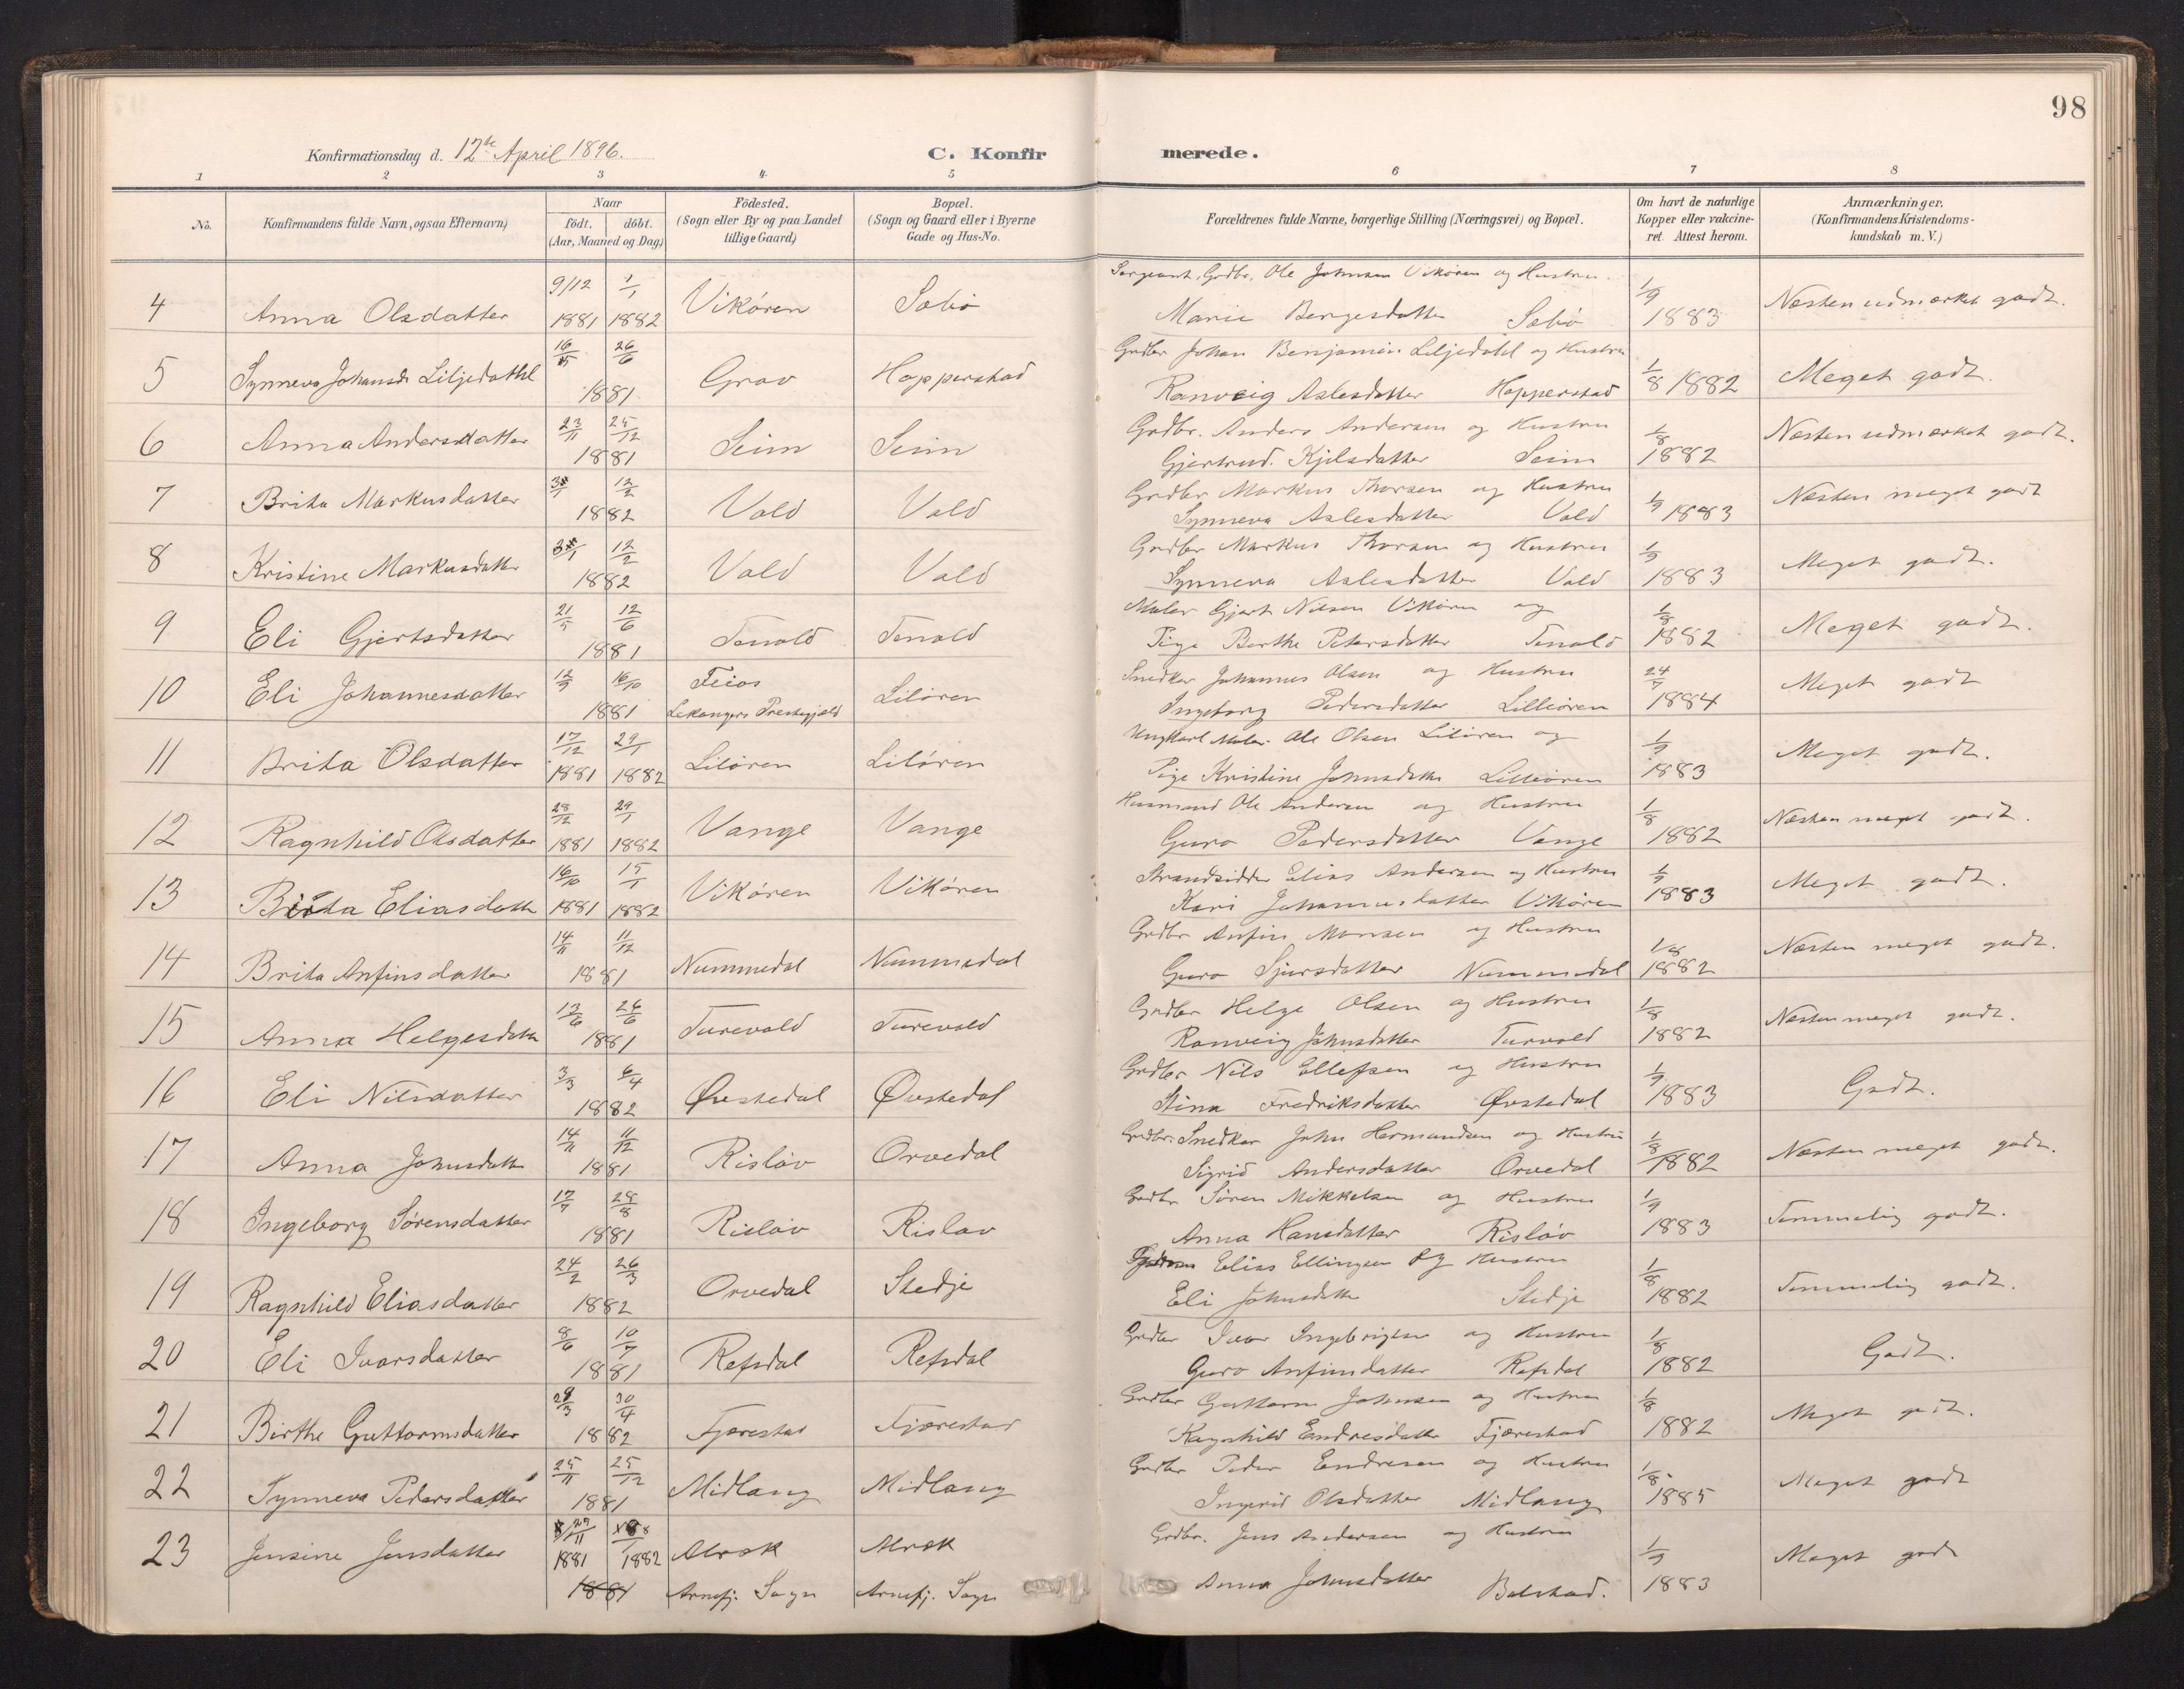 98
Konfirmationsdag d. 12te April 1896.
C. Konfirmerede.
1 2 3 4 5 6 7 8
No. Konfirmandens fulde Navn, ogsaa Efternavn) Naar födt. döbt. (Aar, Maaned og Dag) Födested. (Sogn eller By og paa Landet tillige Gaard) Bopæl. (Sogn og Gaard eller i Byerne Gade og Hus-No. Forældrenes fulde Navne, borgerlige Stilling (Næringsvei) og Bopæl. Om havt de naturlige Kopper eller vakcineret. Attest herom. Anmærkninger. (Konfirmandens Kristendomskundskab m. V.)
Sergeant, Grdbr. Ole Johnsen Vikören og Hustru
4 Anna Olsdatter 9/12 1881 1/1 1882 Vikören Sæbö Marie Bergesdatter Sæbö 1/9 1883 Næsten udmærket godt.
Grdbr Johan Benjamin Liljedahl og Hustru
5 Synneva Johansdr Liljedahl 16/5 26/6 1881 Grov Hopperstad Ranveig Aslesdatter Hopperstad 1/8 1882 Meget godt.
Grdbr. Anders Andersen og Hustru
6 Anna Andersdatter 23/11 25/12 1881 Seim Seim Gjertrud Kjelsdatter Seim 1/8 1882 Næsten udmærket godt.
Grdbr Markus Thorsen og Hustru
7 Brita Markusdatter 12/2 1882 Vold Vold Synneva Aslesdatter Vold 1/9 1883 Næsten meget godt
Grdbr Markus Thorsen og Hustru
8 Kristine Markusdatter 12/2 1882 Vold Vold Synneva Aslesdatter Vold 1/9 1883 Meget godt.
Maler Gjert Nilsen Vikören og
9 Eli Gjertsdatter 21/5 12/6 1881 Tenold Tenold Pige Berthe Petersdatter Tenold 1/8 1882 Meget godt.
Snedker Johannes Olsen og Hustru
10 Eli Johannesdatter 12/9 16/10 1881 Feios Lekangers Prestegjeld Lilören Ingeborg Pedersdatter Lilleören 24/7 1884 Meget godt
Ungkarl Maler Ole Olsen Lilören og
11 Brita Olsdatter 17/12 1881 29/1 1882 Lilören Lilören Pige Kristine Johnsdatter Lilleören 1/9 1883 Meget godt.
Husmand Ole Andersen og Hustru
12 Ragnhild Olsdatter 28/12 1881 29/1 1882 Vange Vange Guro Pedersdatter Vange 1/8 1882 Næsten meget godt.
Strandsidder Elias Andersen og Hustru
13 Brita Eliasdatter 16/10 1881 15/1 1882 Vikören Vikören Kari Johannesdatter Vikören 1/9 1883 Meget godt.
Grdbr Anfin Monsen og Hustru
14 Brita Anfinsdatter 14/11 11/12 1881 Nummedal Nummedal Guro Sjursdatter Nummedal 1/8 1882 Næsten meget godt.
Grdbr Helge Olsen og Hustru
15 Anna Helgesdatter 13/6 26/6 1881 Turevold Turevold Ranveig Johnsdatter Turvold 1/8 1882 Næsten meget godt.
Grdbr Nils Ellefsen og Hustru
16 Eli Nilsdatter 3/3 6/4 1882 Øvstedal Øvstedal Stina Fredriksdatter Øvstedal 1/9 1883 Godt.
Grdbr. Snedker John Hermundsen og Hustru
17 Anna Johnsdatter 14/11 11/12 1881 Risløv Orvedal Sigrid Andersdatter Orvedal 1/8 1882 Næsten meget godt.
Grdbr Søren Mikkelsen og Hustru
18 Ingeborg Sørensdatter 17/7 28/8 1881 Risløv Risløv Anna Hansdatter Risløv 1/9 1883 Temmelig godt.
Elias Ellingsen og Hustru
19 Ragnhild Eliasdatter 24/2 26/3 1882 Orvedal Stedje Eli Johnsdatter Stedje 1/8 1882 Temmelig godt.
Grdbr Ivar Ingebrigtsen og Hustru
20 Eli Ivarsdatter 8/6 10/7 1881 Refsdal Refsdal Guro Anfinsdatter Refsdal 1/8 1882 Godt.
Grdbr Guttorm Johnsen og Hustru
21 Birthe Guttormsdatter 30/4 1882 Fjærestad Fjærestad Ragnhild Endresdatter Fjærestad 1/8 1882 Meget godt.
Grdbr Peder Endresen og Hustru
22 Synneva Pedersdatter 25/11 25/12 1881 Midlang Midlang Ingerid Olsdatter Midlang 1/8 1885 Meget godt
Grdbr. Jens Andersen og Hustru
23 Jensine Jensdatter 29/11 1881 1882 Alrek Alrek 1/9 Meget godt
1881 Arnefj. Sogn Arnefj. Sogn Anna Johnsdatter Bolstad. 1883